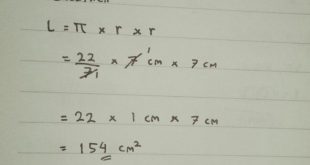 L = π × r × r
= 22/7 1 × 7 1 cm × 7 cm
= 22 × 1 cm × 7 cm
= 154 cm²